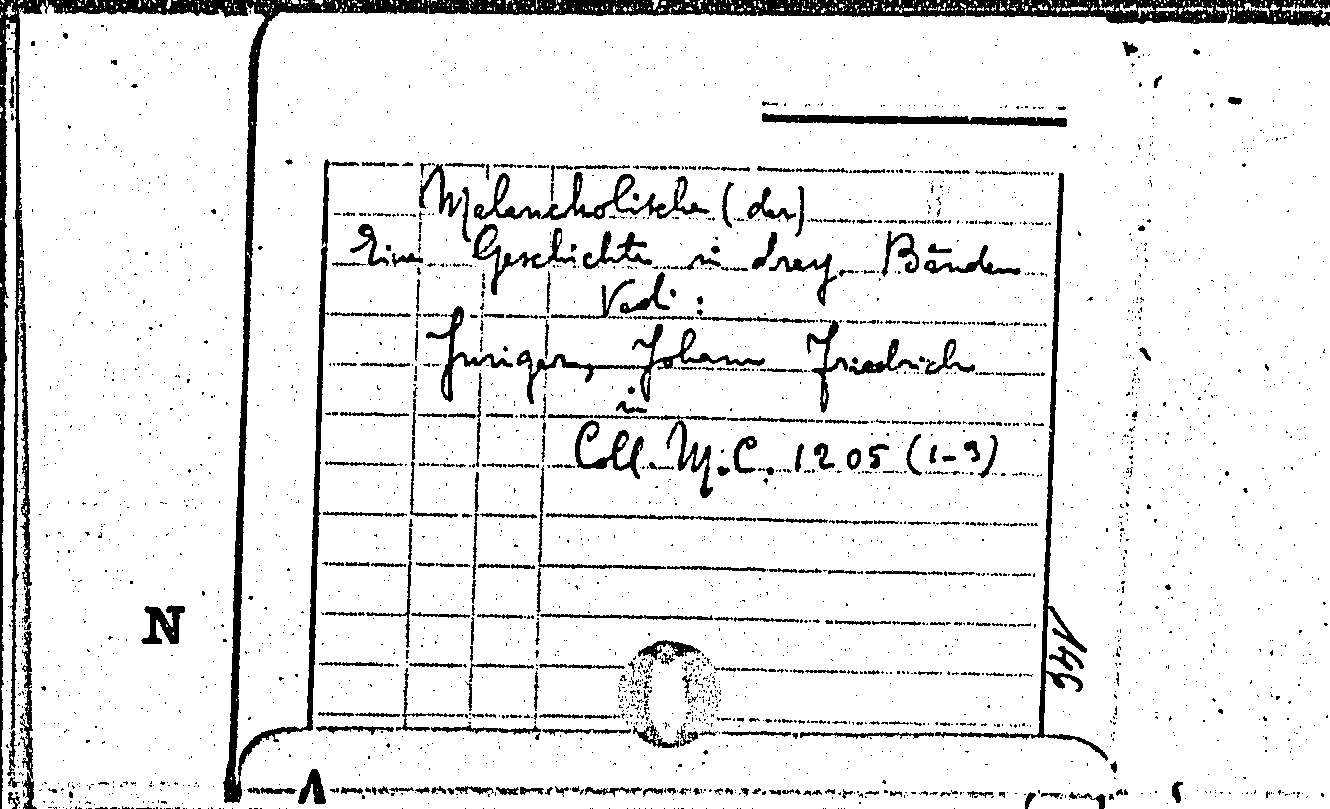 Melancholische (der)
Eine Geschichte in drey Bänden
Vedi:
Junger, Johann Friedrich
in
Coll. M.C. 1205 (1-3)
N